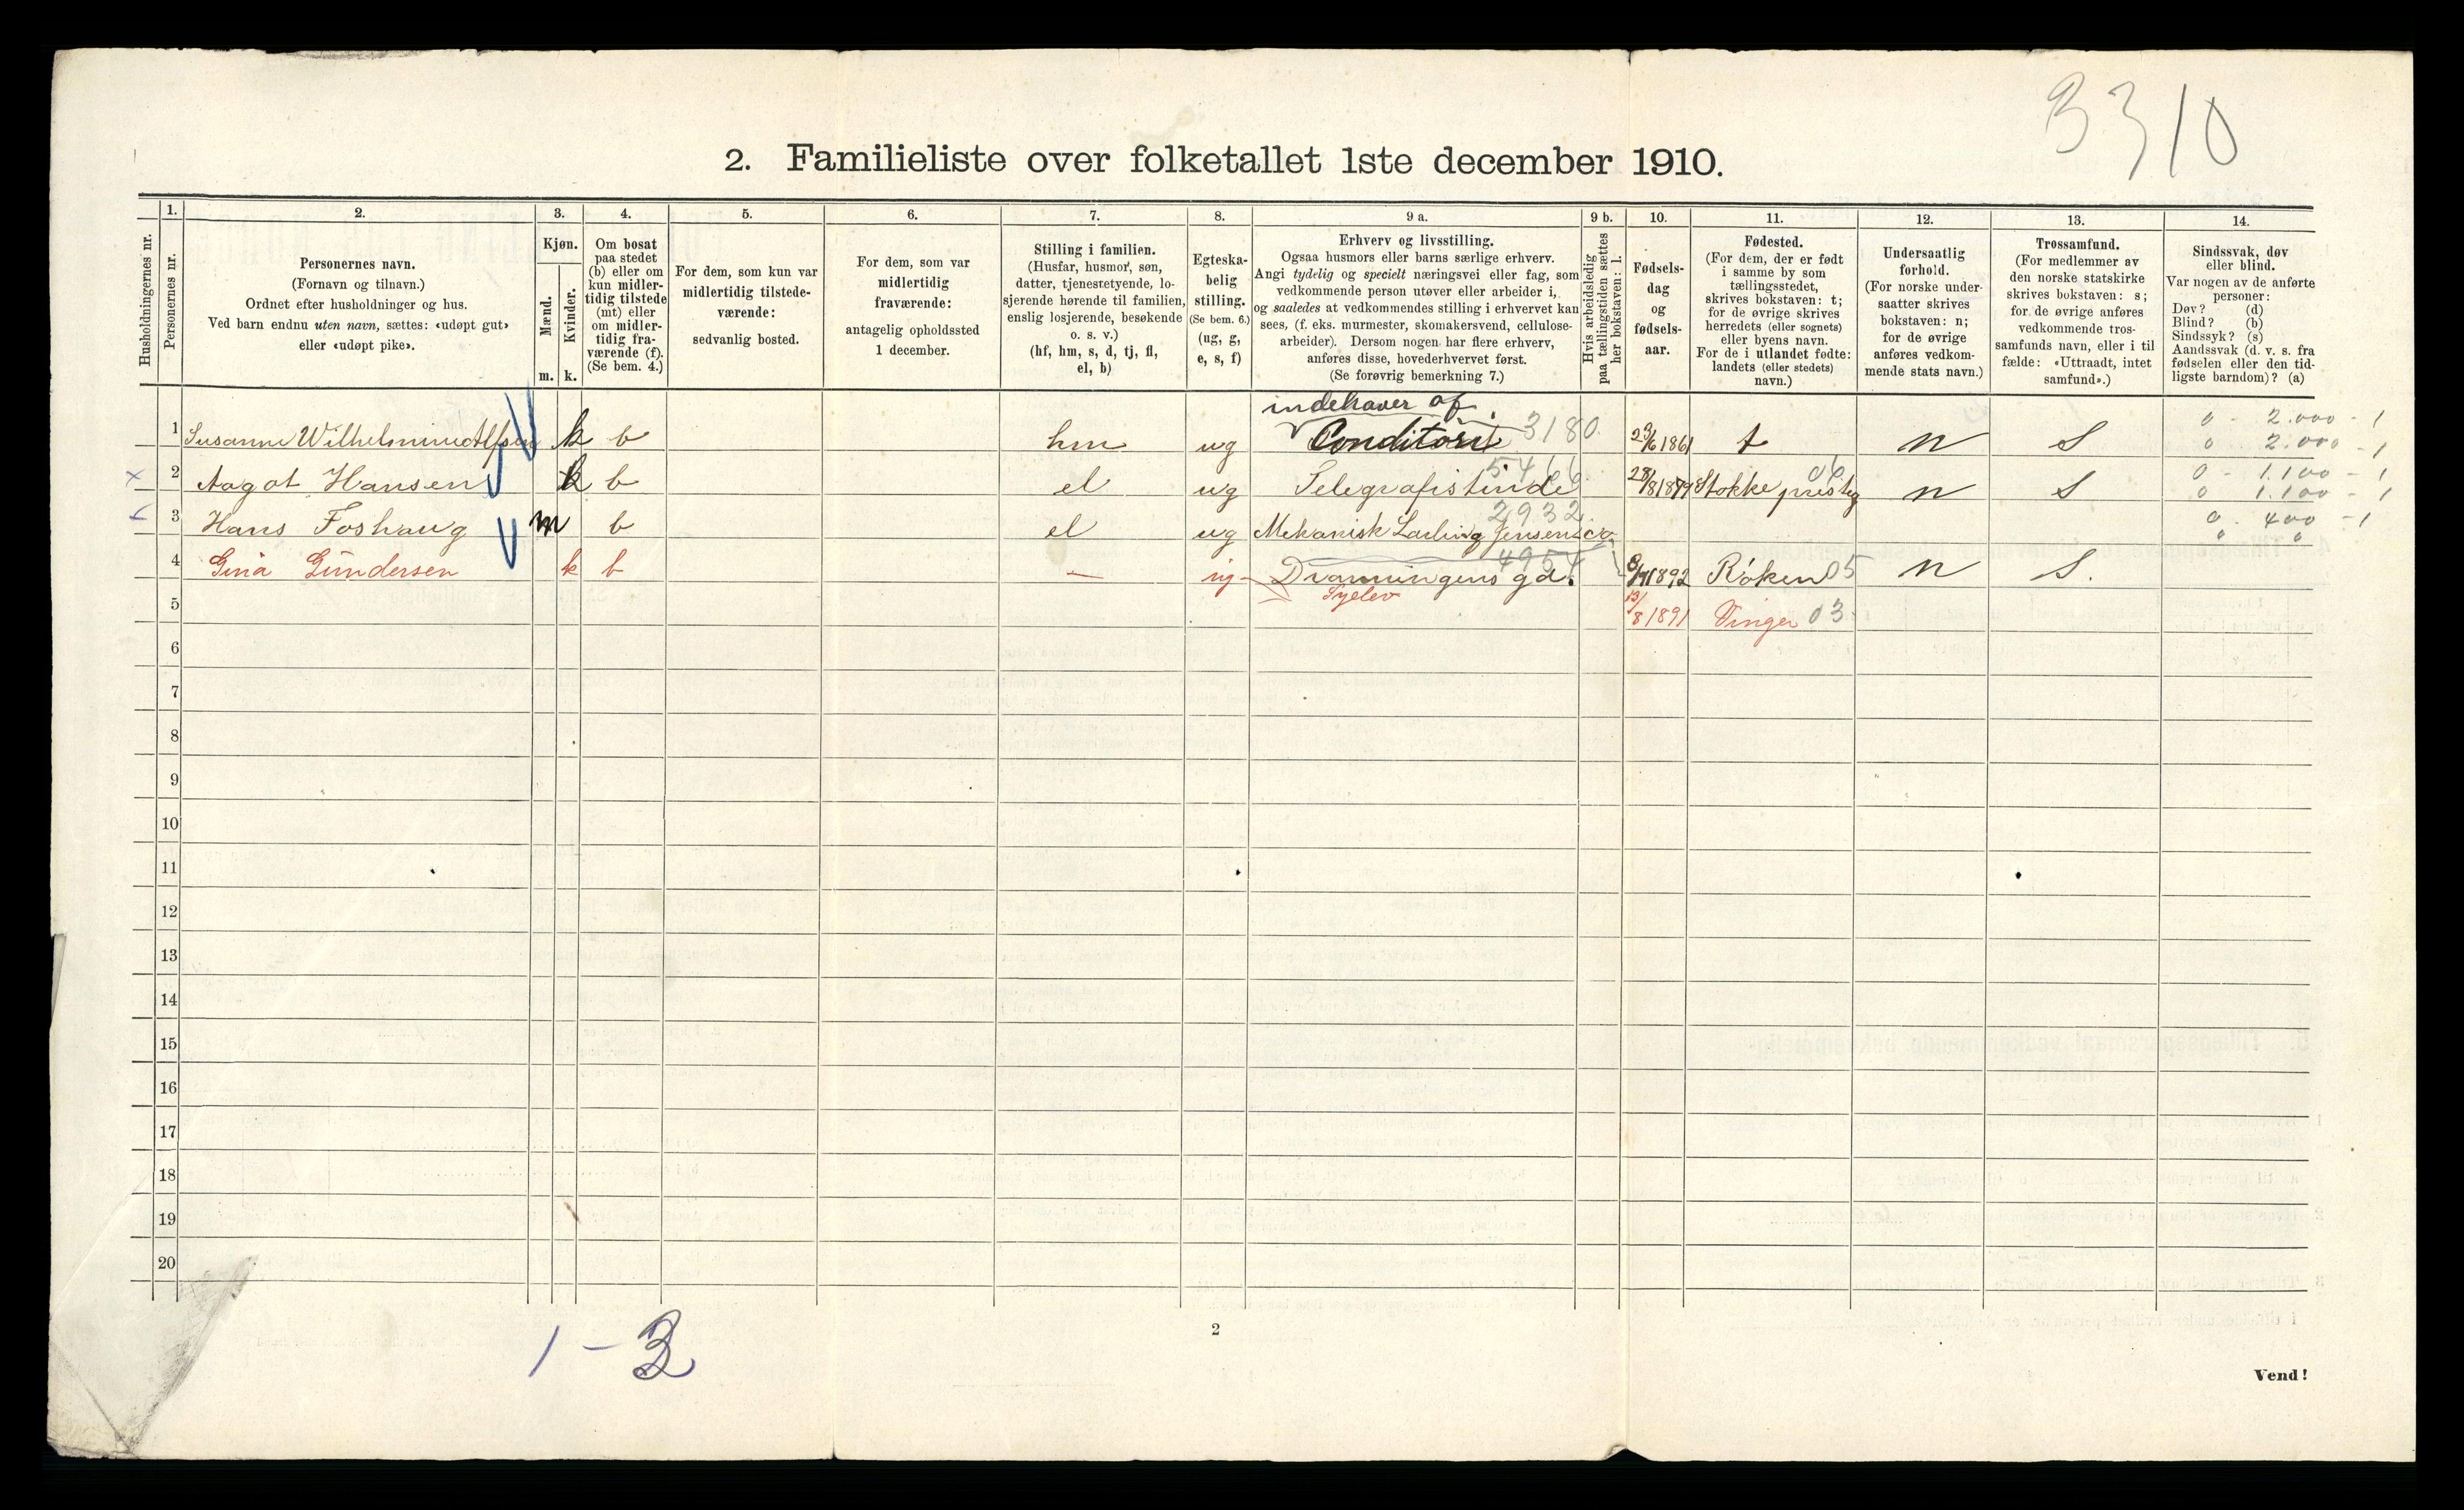 3310
2. Familieliste over folketallet 1ste december 1910.
Husholdningernes nr.
1.
Personernes nr.
2.
Personernes navn.
(Fornavn og tilnavn.)
Ordnet efter husholdninger og hus.
Ved barn endnu uten navn, sættes: «udøpt gut»
eller «udøpt pike».
3.
Kjøn.
Mænd.
Kvinder.
m. k.
4.
Om bosat
paa stedet
(b) eller om
kun midler-
tidig tilstede
(mt) eller
om midler-
tidig fra-
værende (f).
(Se bem. 4.)
5.
For dem, som kun var
midlertidig tilstede-
værende:
sedvanlig bosted.
6.
For dem, som var
midlertidig
fraværende:
antagelig opholdssted
1 december.
7.
Stilling i familien.
(Husfar, husmor, søn,
datter, tjenestetyende, lo-
sjerende hørende til familien,
enslig losjerende, besøkende
o. s. v.)
(hf, hm, s, d, tj, fl,
el, b)
8.
Egteska-
belig
stilling.
(Se bem. 6.)
(ug, g,
e, s, f)
9 a.
Erhverv og livsstilling.
Ogsaa husmors eller barns særlige erhverv.
Angi tydelig og specielt næringsvei eller fag, som
vedkommende person utøver eller arbeider i,
og saaledes at vedkommendes stilling i erhvervet kan
sees, (f. eks. murmester, skomakersvend, cellulose-
arbeider). Dersom nogen har flere erhverv,
anføres disse, hovederhvervet først.
(Se forøvrig bemerkning 7.)
9 b.
Hvis arbeidsledig
paa tællingstiden sættes
her bokstaven: l.
10.
Fødsels-
dag
og
fødsels-
aar.
11.
Fødested.
(For dem, der er født
i samme by som
tællingsstedet,
skrives bokstaven: t;
for de øvrige skrives
herredets (eller sognets)
eller byens navn.
For de i utlandet fødte:
landets (eller stedets)
navn.)
12.
Undersaatlig
forhold.
(For norske under-
saatter skrives
bokstaven: n;
for de øvrige
anføres vedkom-
mende stats navn.)
13.
Trossamfund.
(For medlemmer av
den norske statskirke
skrives bokstaven: s;
for de øvrige anføres
vedkommende tros-
samfunds navn, eller i til
fælde: «Uttraadt, intet
samfund».)
14.
Sindssvak, døv
eller blind.
Var nogen av de anførte
personer:
Døv? (d)
Blind? (b)
Sindssyk? (s)
Aandssvak (d. v. s. fra
fødselen eller den tid-
ligste barndom)? (a)
indehaver af
0 - 2.000 - 1
1 Susanne Wilhelmine Alfsen k b hm ug Conditori 3180. 23/6 1861 t n S
0 2.000 - 1
5466 06 0 - 1.100 - 1
2 Aagot Hansen k b el ug Telegrafistinde 28/8 1879 Stokke presteg n S
0 1.100 - 1
2932 0 - 400 - 1
3 Hans Foshaug m b el ug Mekanisk Larling Jensen & co
4954
4 Gina Gundersen k b - ug Dronningens gd. 8/91892 Røken 05 n S.
Syelev
5 13/8 1891 Vinger 03
6
7
8
9
10
11
12
13
14
15
16
17
18
19
20
1 - 3
2
Vend!